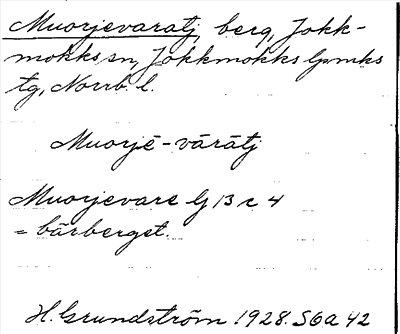 Muorjevaratj, berg, Jokk-
mokks sn, Jokkmokks lpmks
tg, Norrb. l.
Muorjē-vārātj
Muorjevare lj 13 c 4
= bärberget.
H. Grundström 1928. S6a 42